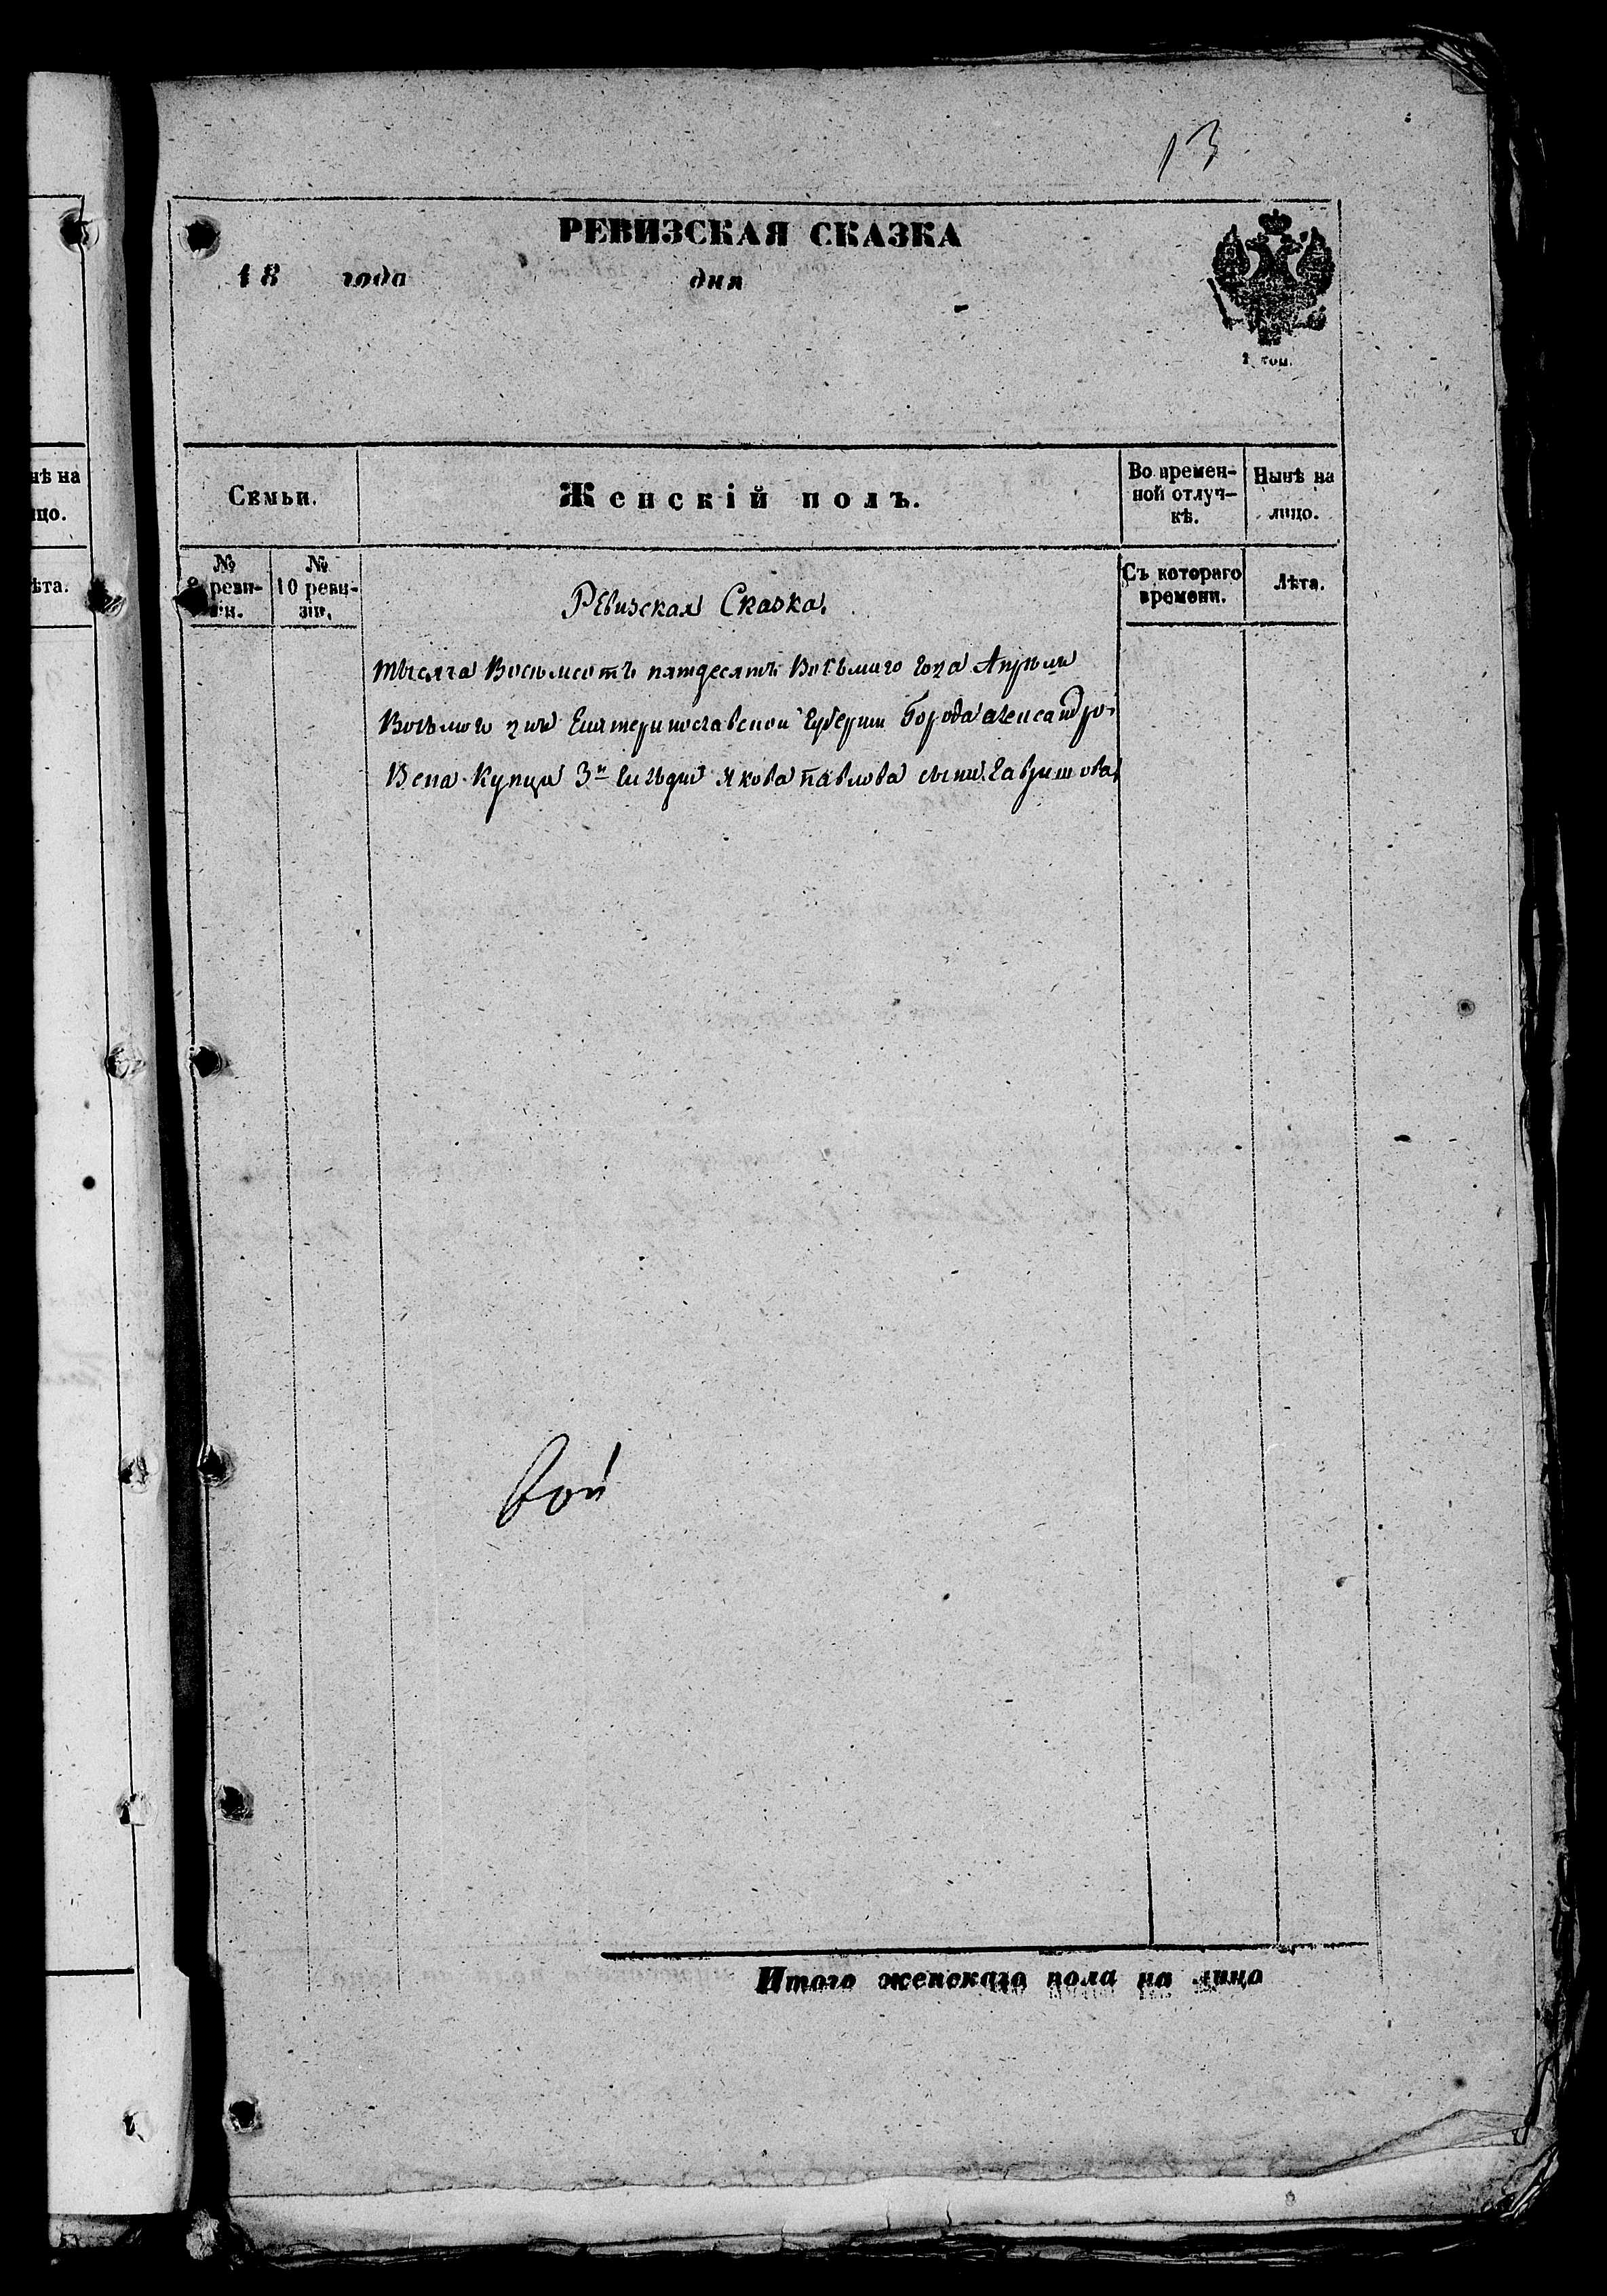 13
РЕВИЗСКАЯ СКАЗКА
18 года дня
нѣ на
цо.
ѣта.
Семьи.
Женскій полъ.
Во времен-
ной отлуч-
кѣ.
Нынѣ на
лицо.
№
реви-
зіи.
№
10 реви-
зіи.
Съ котораго
времени.
Лѣта.
Ревизская Сказка.
тысяча Восемсотъ пятдесятъ Восьмаго года Апреля
Восьмого дня Екатеринославской Губернии Города Александро-
Вска Купца 3й Гильдии Якова Павлова сына Гавришова
Итого женскаго пола на лицо